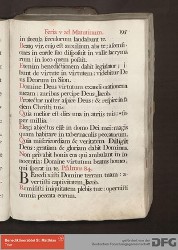 Feria v ad Matutinum. 197
in secula seculorum laudabunt te.
Beatus vir, cuius est auxilium abs te: ascensi-
ones in corde suo disposuit in valle lacryma-
rum: in loco quem posuit.
Etenim benedictionem dabit legislator i-
bunt de virtute in virtutem: videbitur De-
us Deorum in Sion.
Domine Deus virtutum exaudi orationem
meam: auribus percipe Deus Jacob.
Protector noster aspice Deus: & respice in fa-
ciem Christi tui.
Quia melior est dies una in atriis tuis: su-
per millia.
Elegi abiectus esse in domo Dei mei: magis
quam habitare in tabernaculis peccatorum.
Quia misericordiam & veritatem diligit
Deus: gratiam & gloriam dabit Dominus.
Non privabit bonis eos qui ambulant in in-
nocentia: Domine virtutum beatus homo,
qui sperat in te. Psalmus 84.
Benedixisti Domine terram tuam: a-
vertisti captivitatem Jacob.
Remisisti iniquitatem plebis tuæ: operuisti
omnia peccata eorum.
DFG